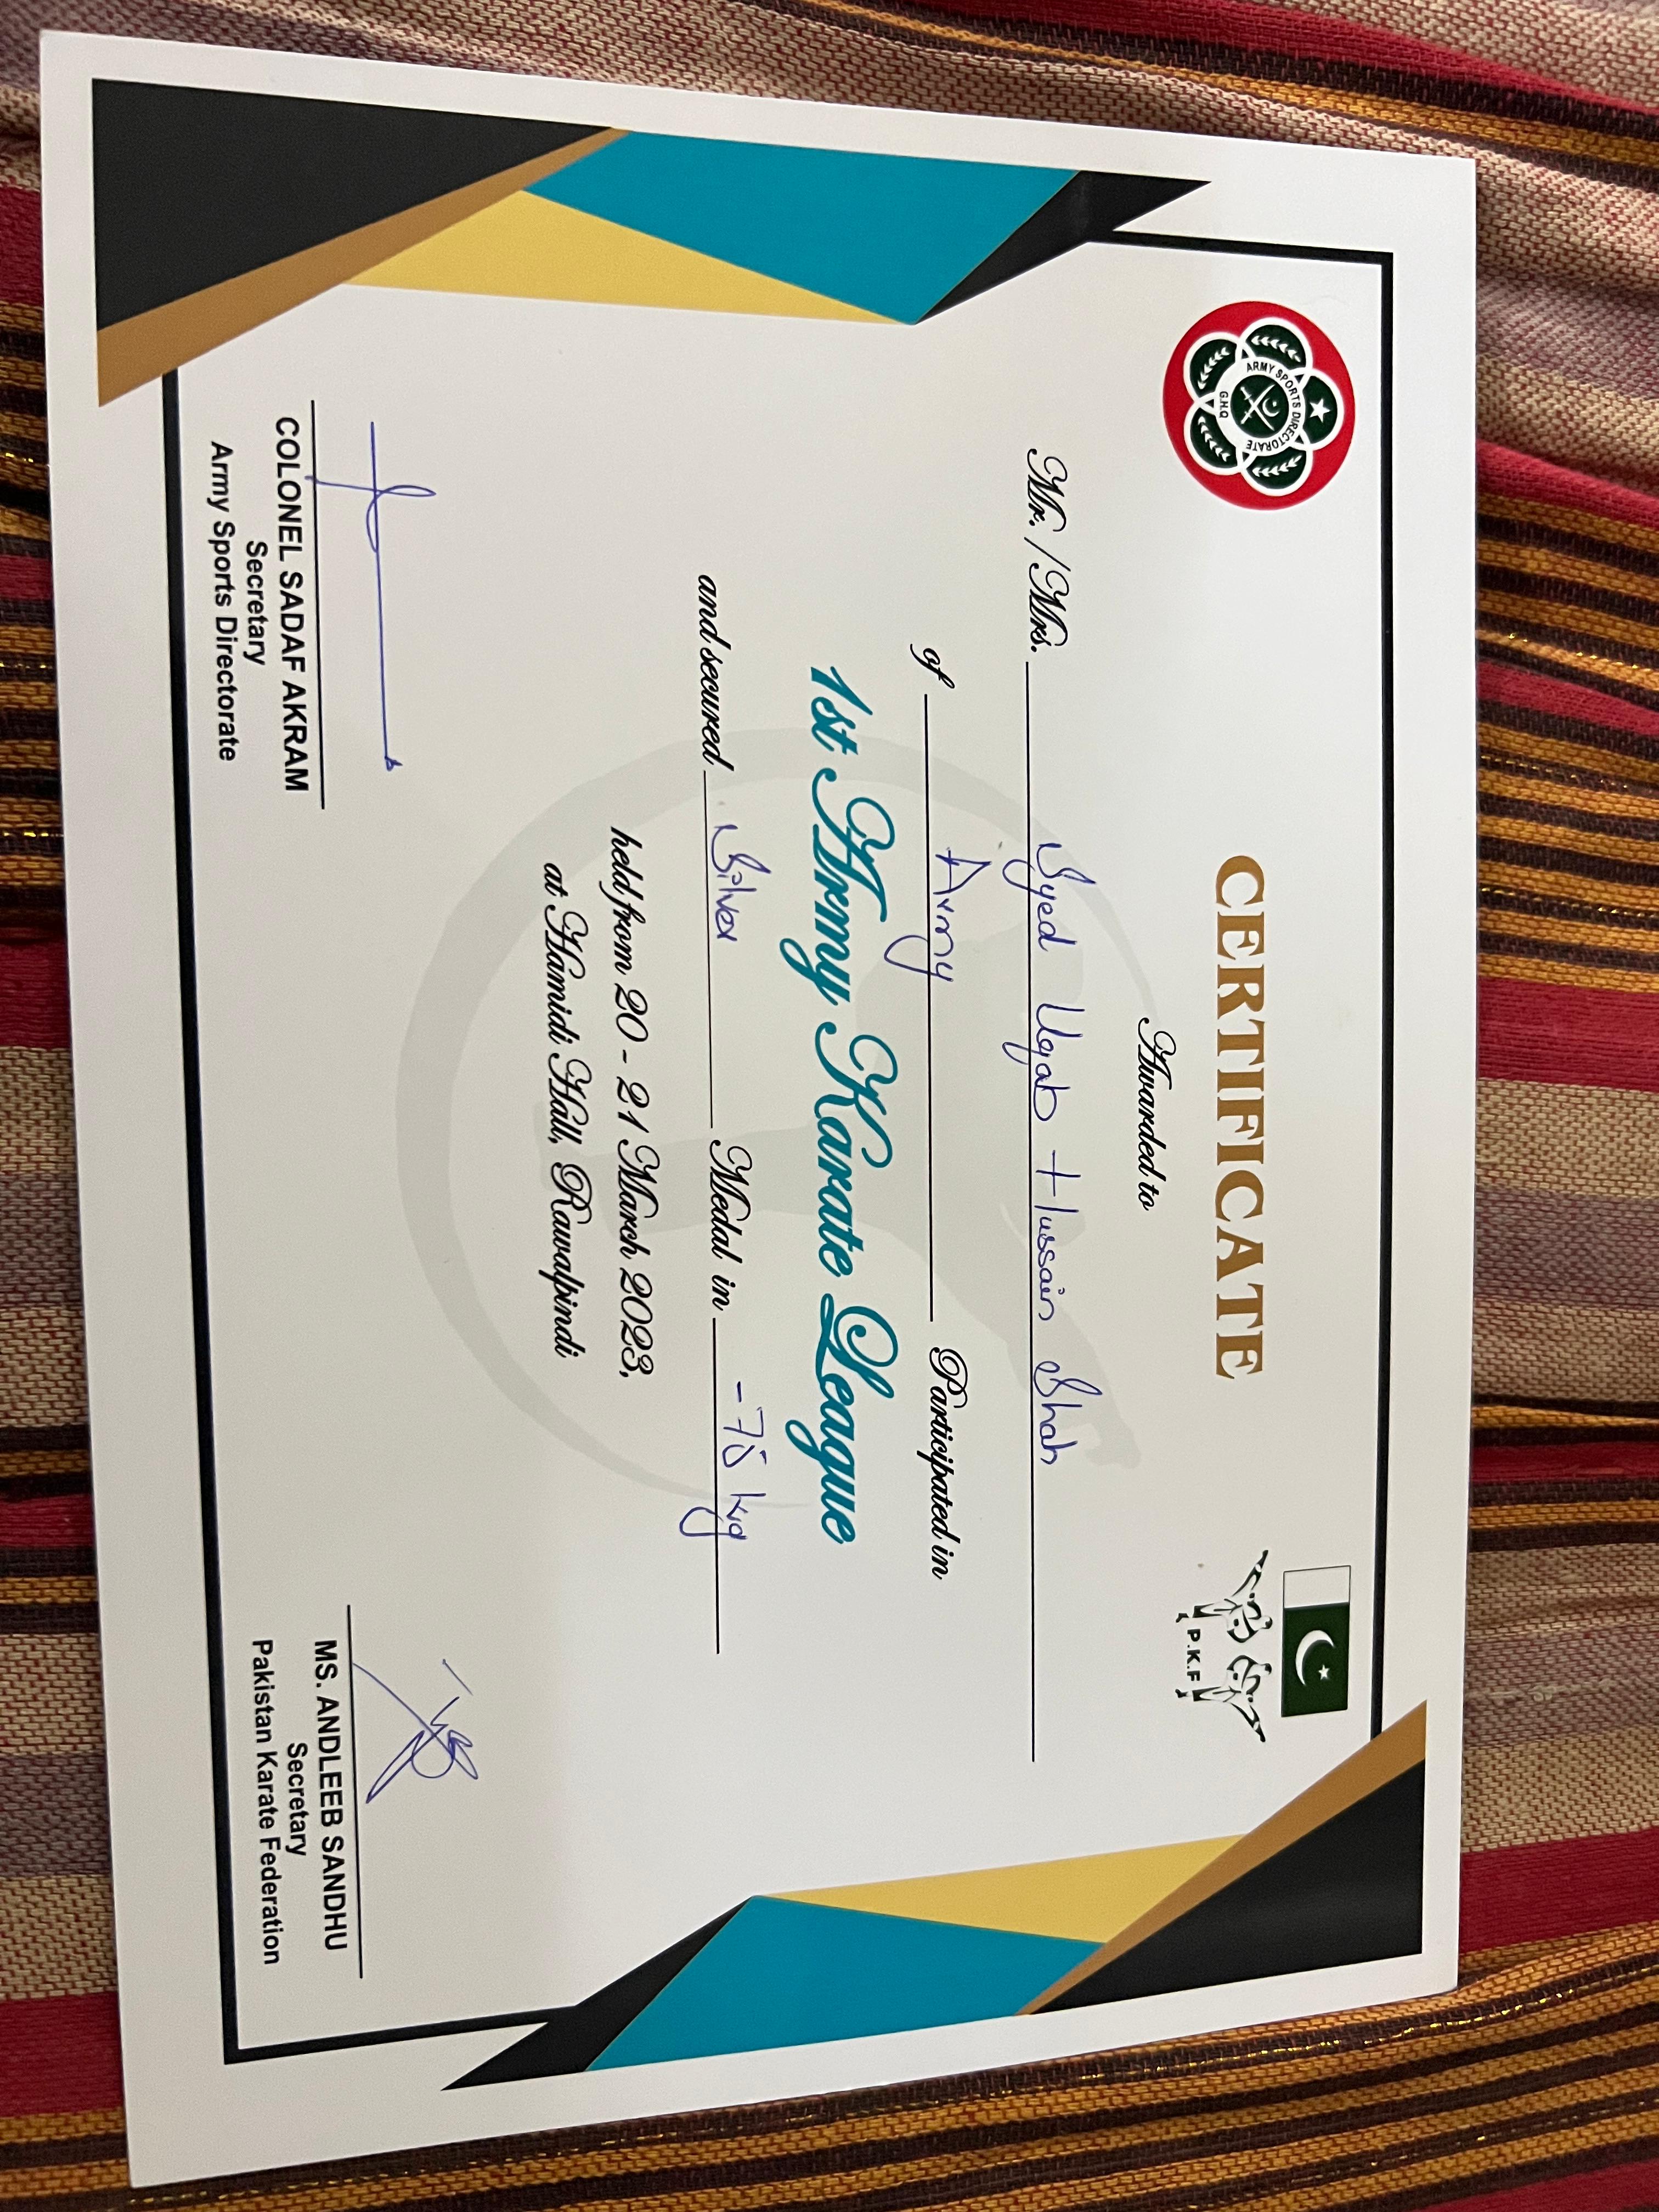 ARMY SPORTS DIRECTORATE
G.H.Q
P.K.F
CERTIFICATE
Awarded to
Mr. / Mrs. Syed Uqab Hussain Shah
of Army Participated in
1st Army Karate League
and secured Silver Medal in -75 kg
held from 20 - 21 March 2023,
at Hamidi Hall, Rawalpindi
COLONEL SADAF AKRAM
Secretary
Army Sports Directorate
MS. ANDLEEB SANDHU
Secretary
Pakistan Karate Federation